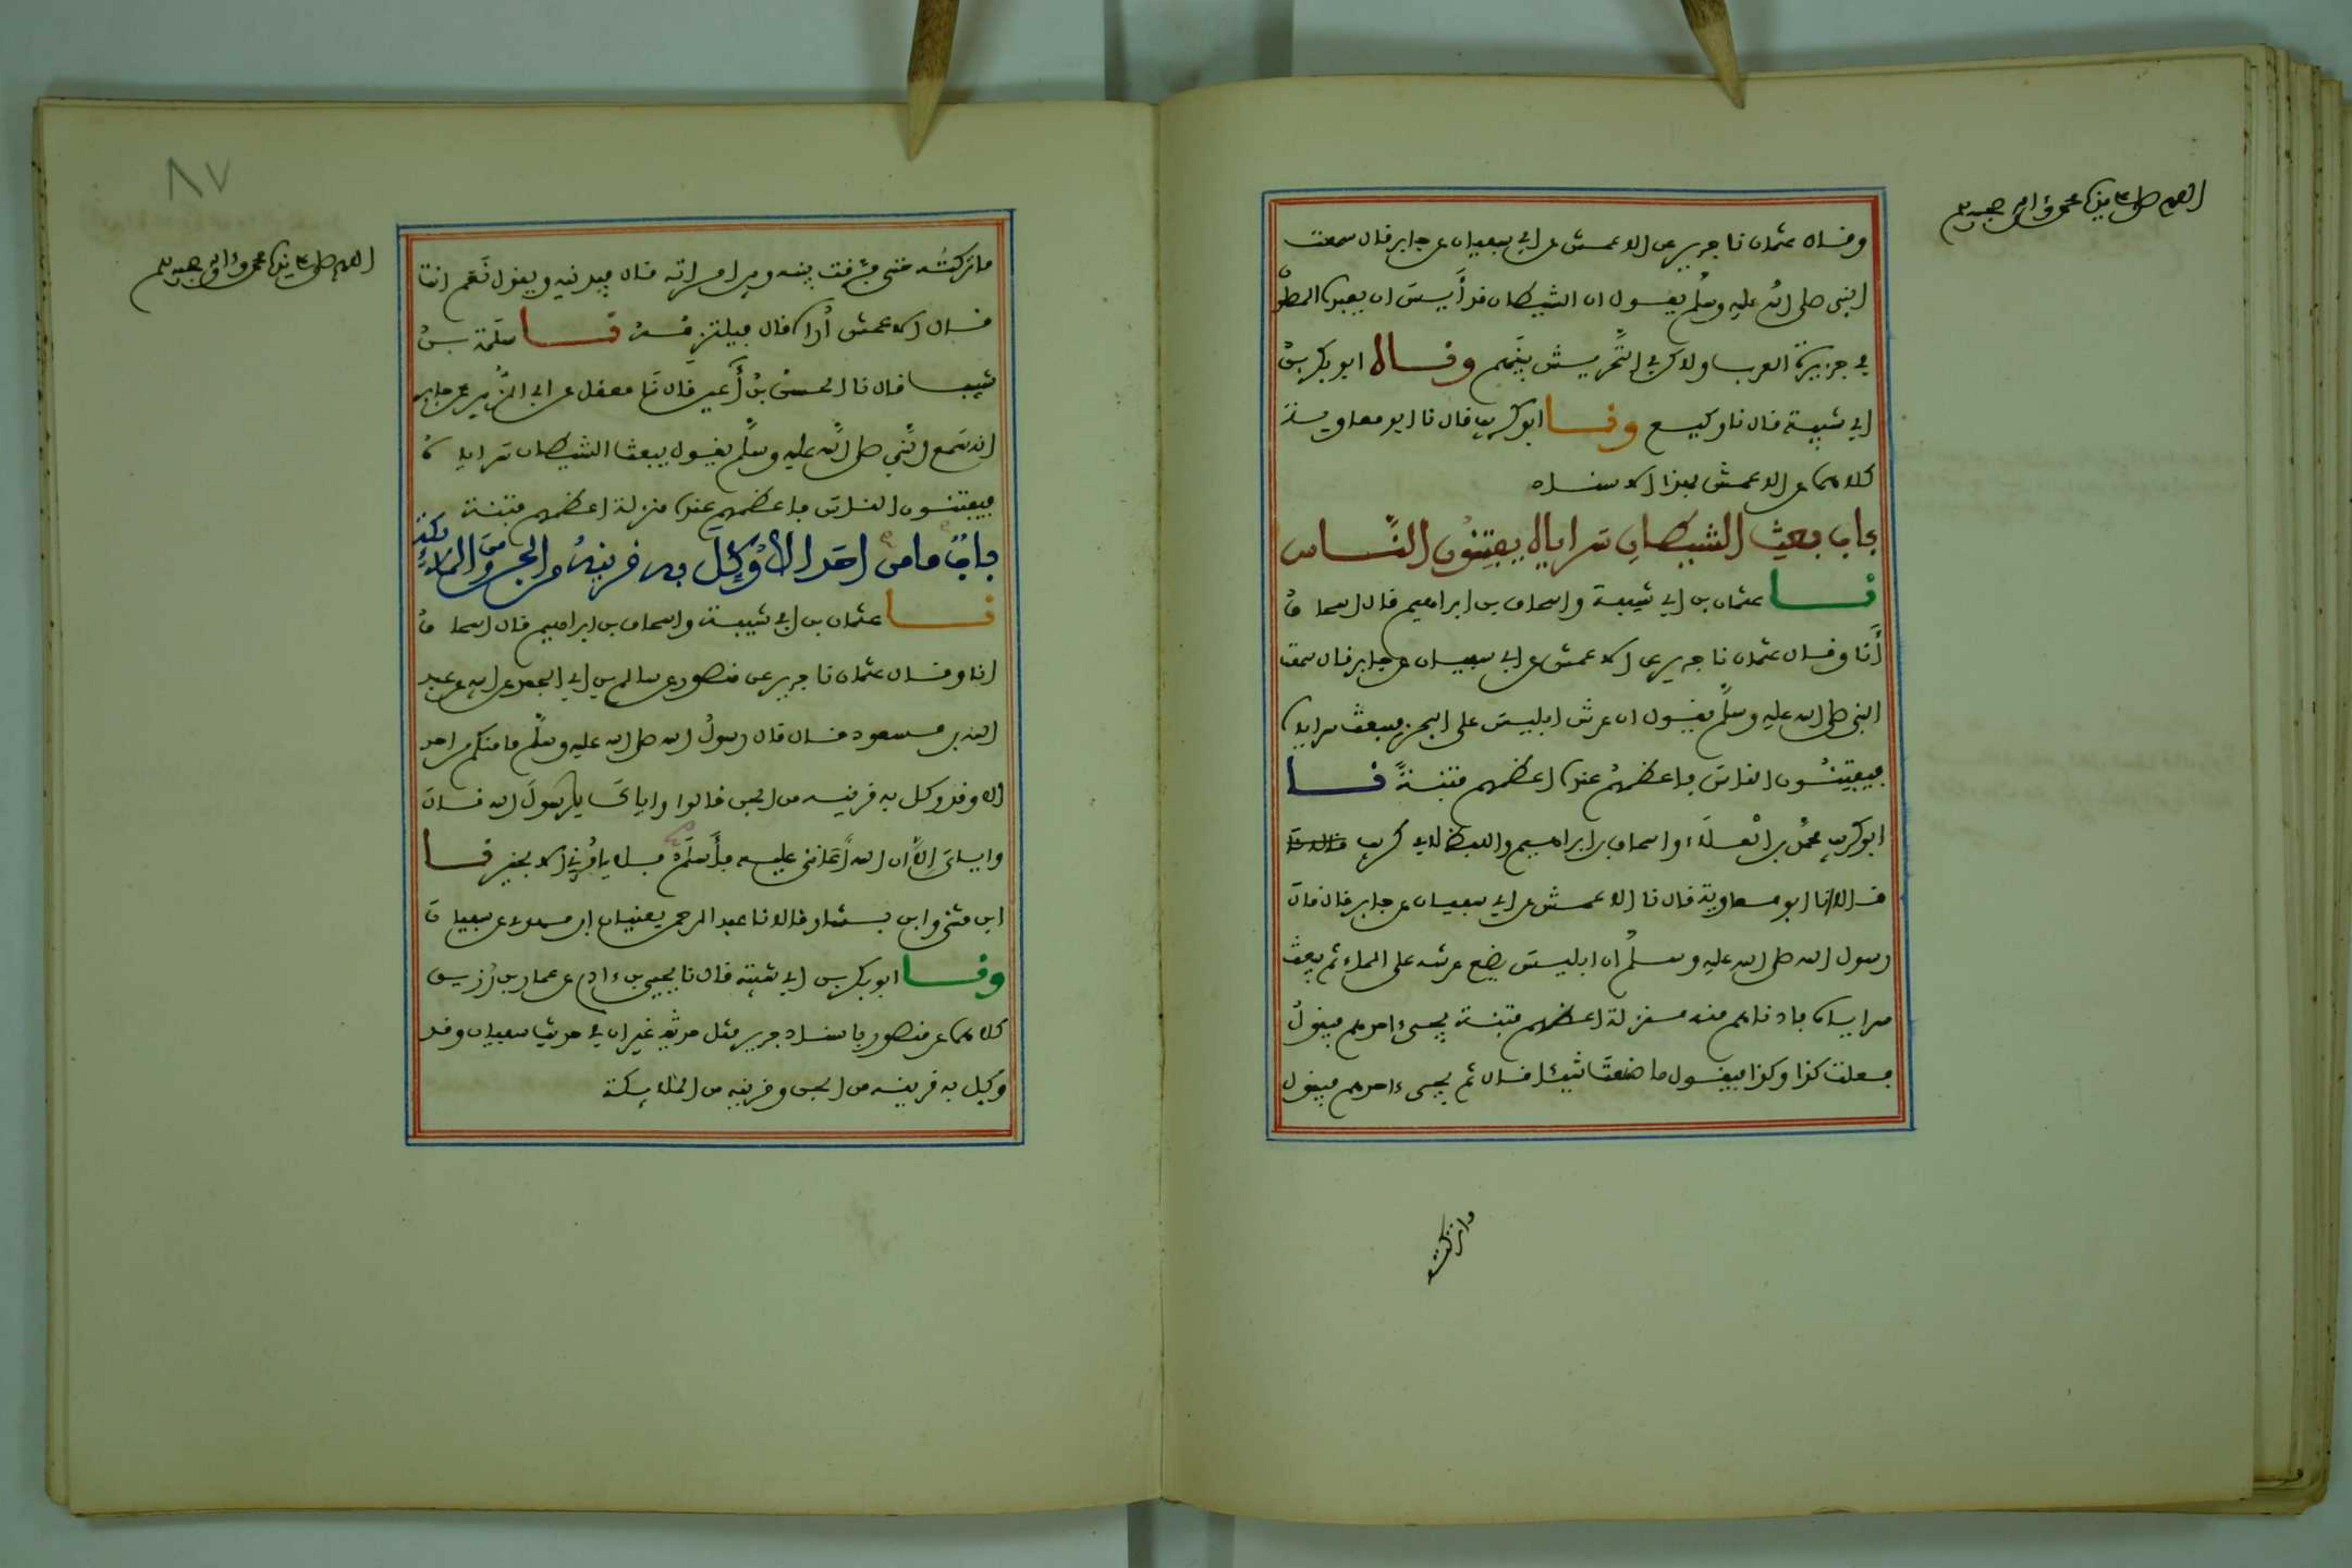 اللهم صل على سيدنا محمد وءاله وصحبه وسلم
وقال عثمان نا جرير عن الاعمش عن ابي سفيان عن جابر قال سمعت
النبي صلى الله عليه وسلم يقول ان الشيطان قد أَيس ان يعبده المصلو
في جزيرة العرب ولاكن في التحريش بينهم وناه ابو بكر بن
ابي شيبة قال نا وكيع ونا ابو كريب قال نا ابو معاوية
كلاهما عن الاعمش بهذا الاسناد
باب بعث الشيطان سراياه يفتنون الناس
نا عثمان بن ابي شيبة واسحاق بن ابراهيم قال اسحاق
أنا وقال عثمان نا جرير عن الاعمش عن ابي سفيان عن جابر قال سمعت
النبي صلى الله عليه وسلم يقول ان عرش ابليس على البحر فيبعث سراياه
فيفتنون الناس فاعظمهم عنده اعظمهم فتنة نا
ابو كريب محمد بن العلاء واسحاق بن ابراهيم واللفظ لابي كريب
قالا نا ابو معاوية قال نا الاعمش عن ابي سفيان عن جابر قال قال
رسول الله صلى الله عليه وسلم ان ابليس يضع عرشه على الماء ثم يبعث
سراياه فادناهم منه منزلة اعظمهم فتنة يجيء احدهم فيقول
فعلت كذا وكذا فيقول ما صنعت شيئا قال ثم يجيء احدهم فيقول
ما تركته
٨٧
اللهم صل على سيدنا محمد وءاله وصحبه وسلم
ما تركته حتى فرقت بينه وبين امراته قال فيدنيه ويقول نعم انت
قال الاعمش أراه قال فيلتزمه نا سلمة بن
شبيب قال نا الحسن بن أعين قال نا معقل عن ابي الزبير عن جابر
انه سمع النبي صلى الله عليه وسلم يقول يبعث الشيطان سراياه
فيفتنون الناس فاعظمهم عنده منزلة اعظمهم فتنة
باب ما من احد الا وُكِّل به قرينه من الجن ومن الملائكة
نا عثمان بن ابي شيبة واسحاق بن ابراهيم قال اسحاق
انا وقال عثمان نا جرير عن منصور عن سالم بن ابي الجعد عن ابيه عن عبد
الله بن مسعود قال قال رسول الله صلى الله عليه وسلم ما منكم من احد
الا وقد وكل به قرينه من الجن قالوا واياك يا رسول الله قال
واياي إلا ان الله أعانني عليه فأسلم فلا يامرني الا بخير نا
ابن مثنى وابن بشار قالا نا عبد الرحمن يعنيان ابن مهدي عن سفيان
ونا ابو بكر بن ابي شيبة قال نا يحيى بن ءادم عن عمار بن رزيق
كلاهما عن منصور باسناد جرير مثل حديثه غير ان في حديث سفيان وقد
وكل به قرينه من الجن وقرينه من الملائكة